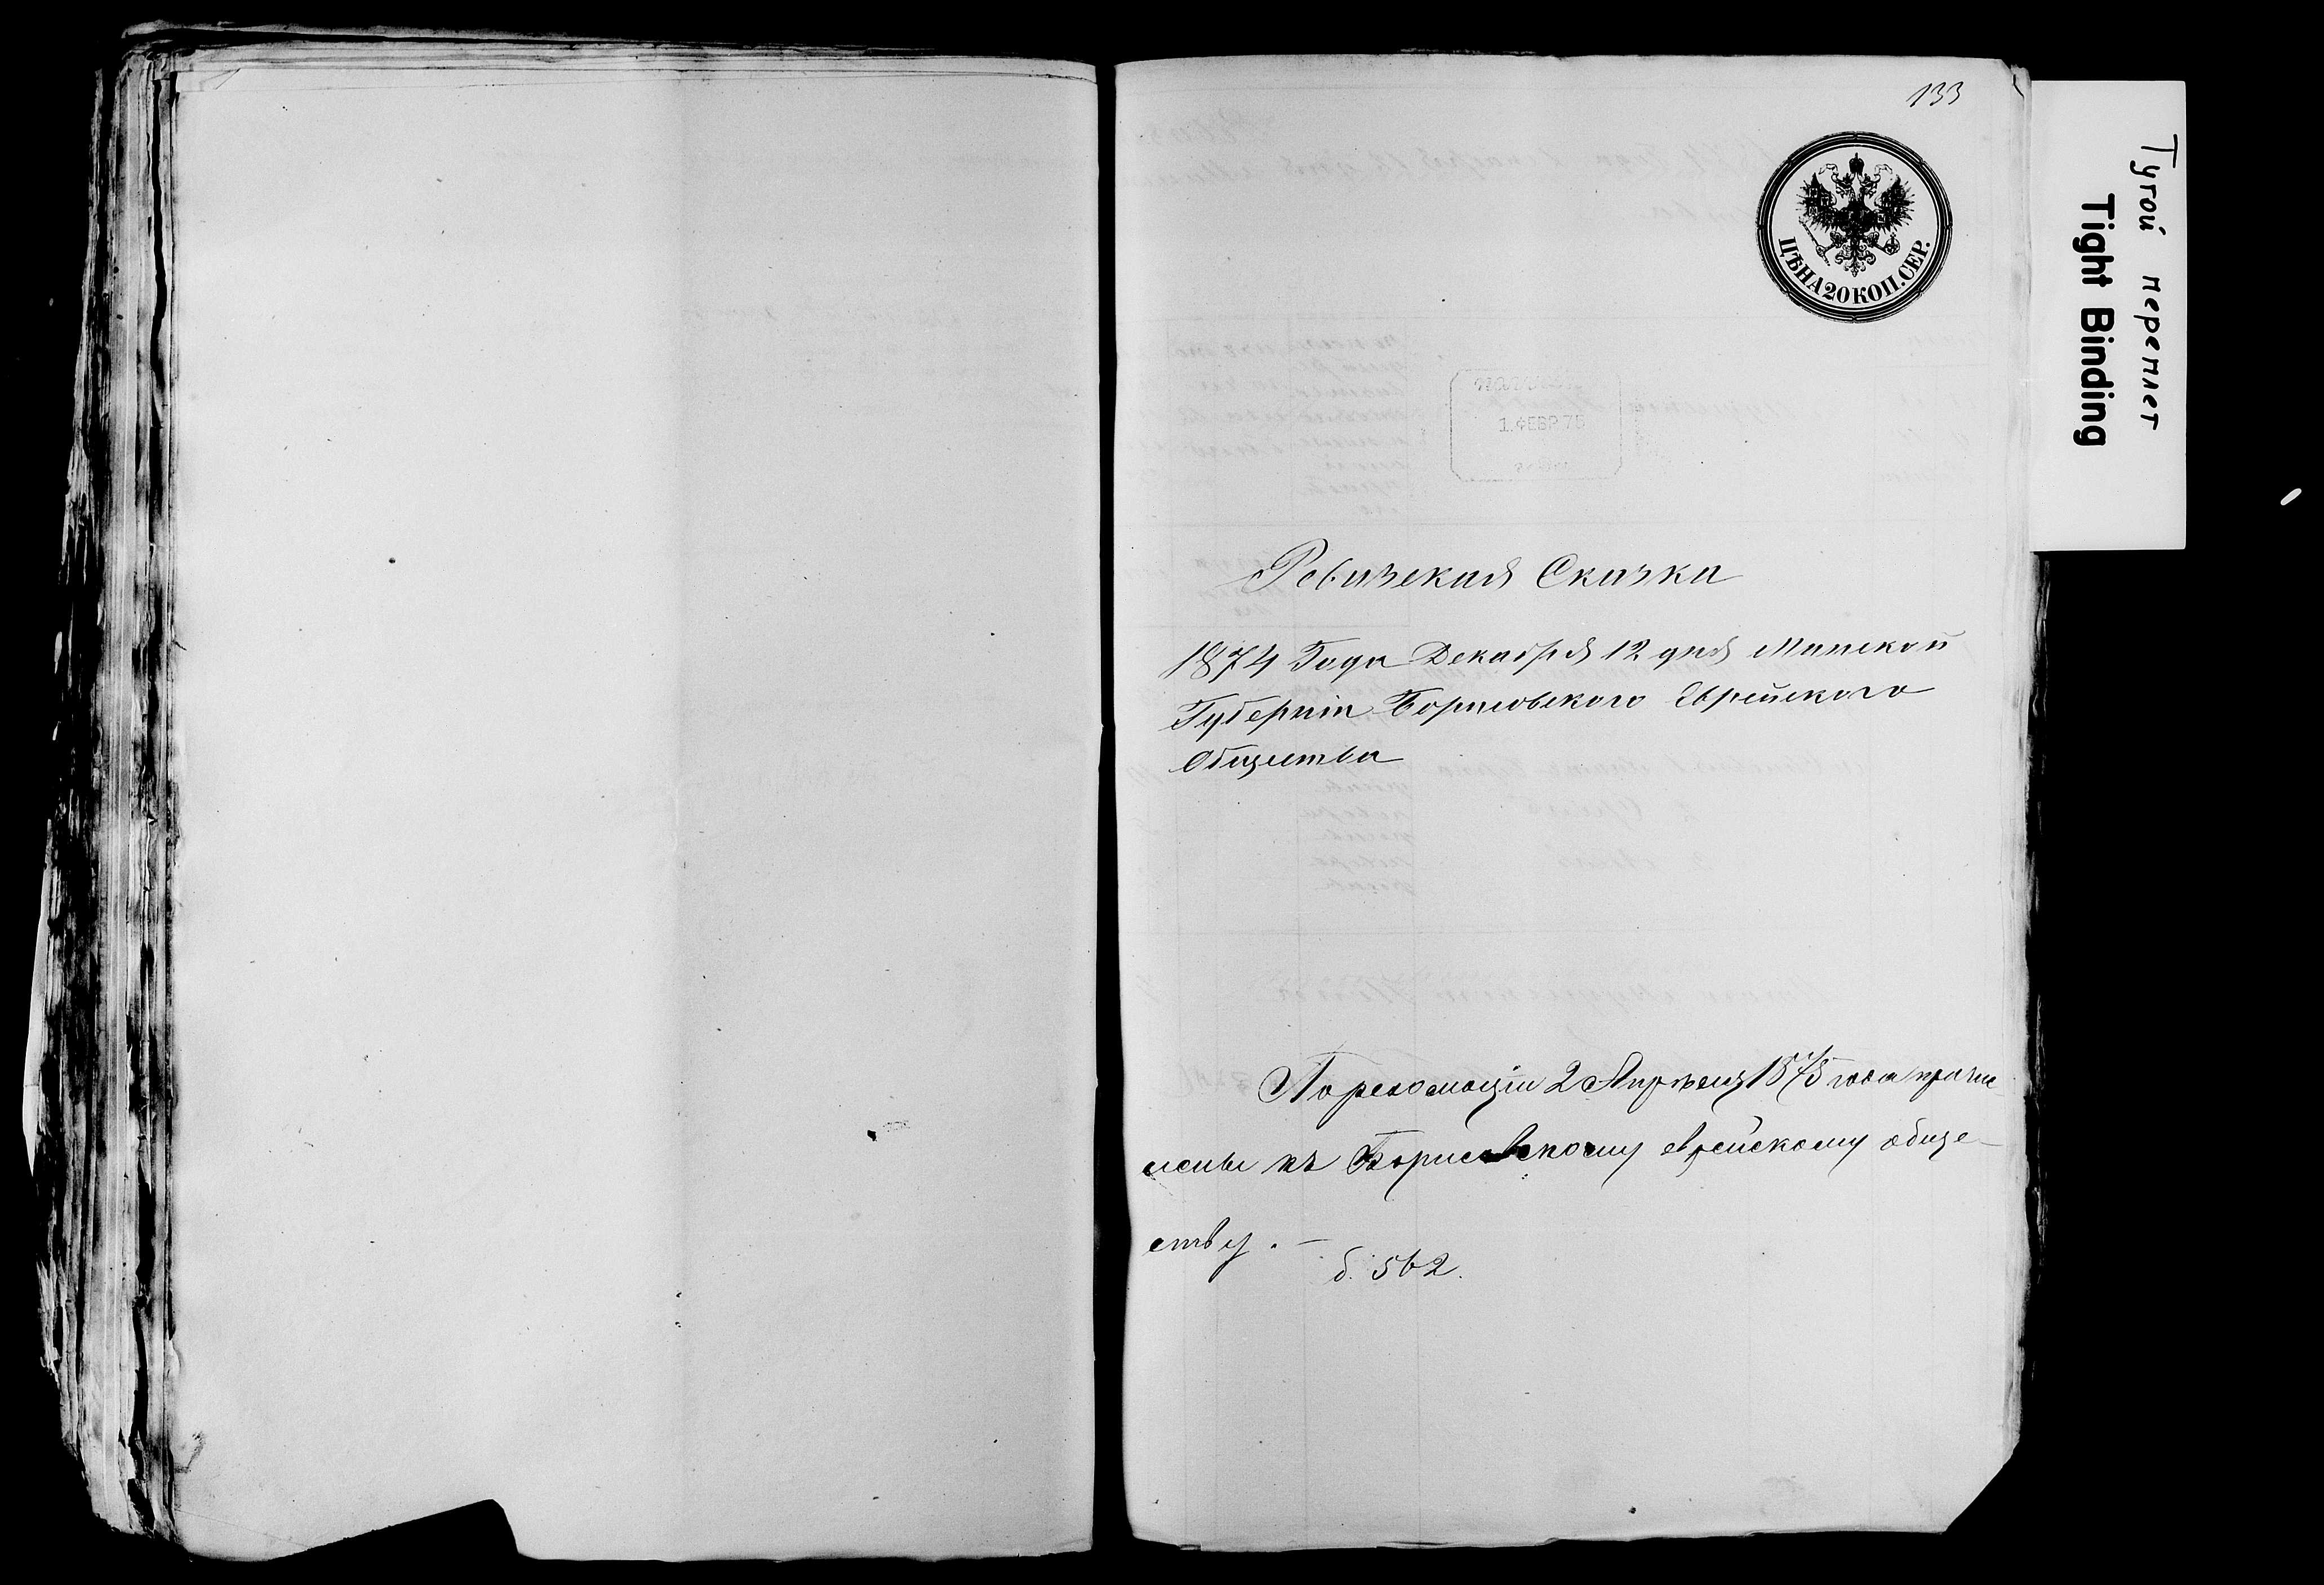 133
ЦѢНА 20 КОП. СЕР.
Тугой переплет
Tight Binding
1. ФЕВР. 75
Ревизская Сказка
1874 Года Декабря 12 дня Минской
Губерніи Борисовского Еврейского
Общества
По резолюціи 2 Апрѣля 1875 года причис
лены къ Борисовскому еврейскому обще-
ству. –
б. 562.